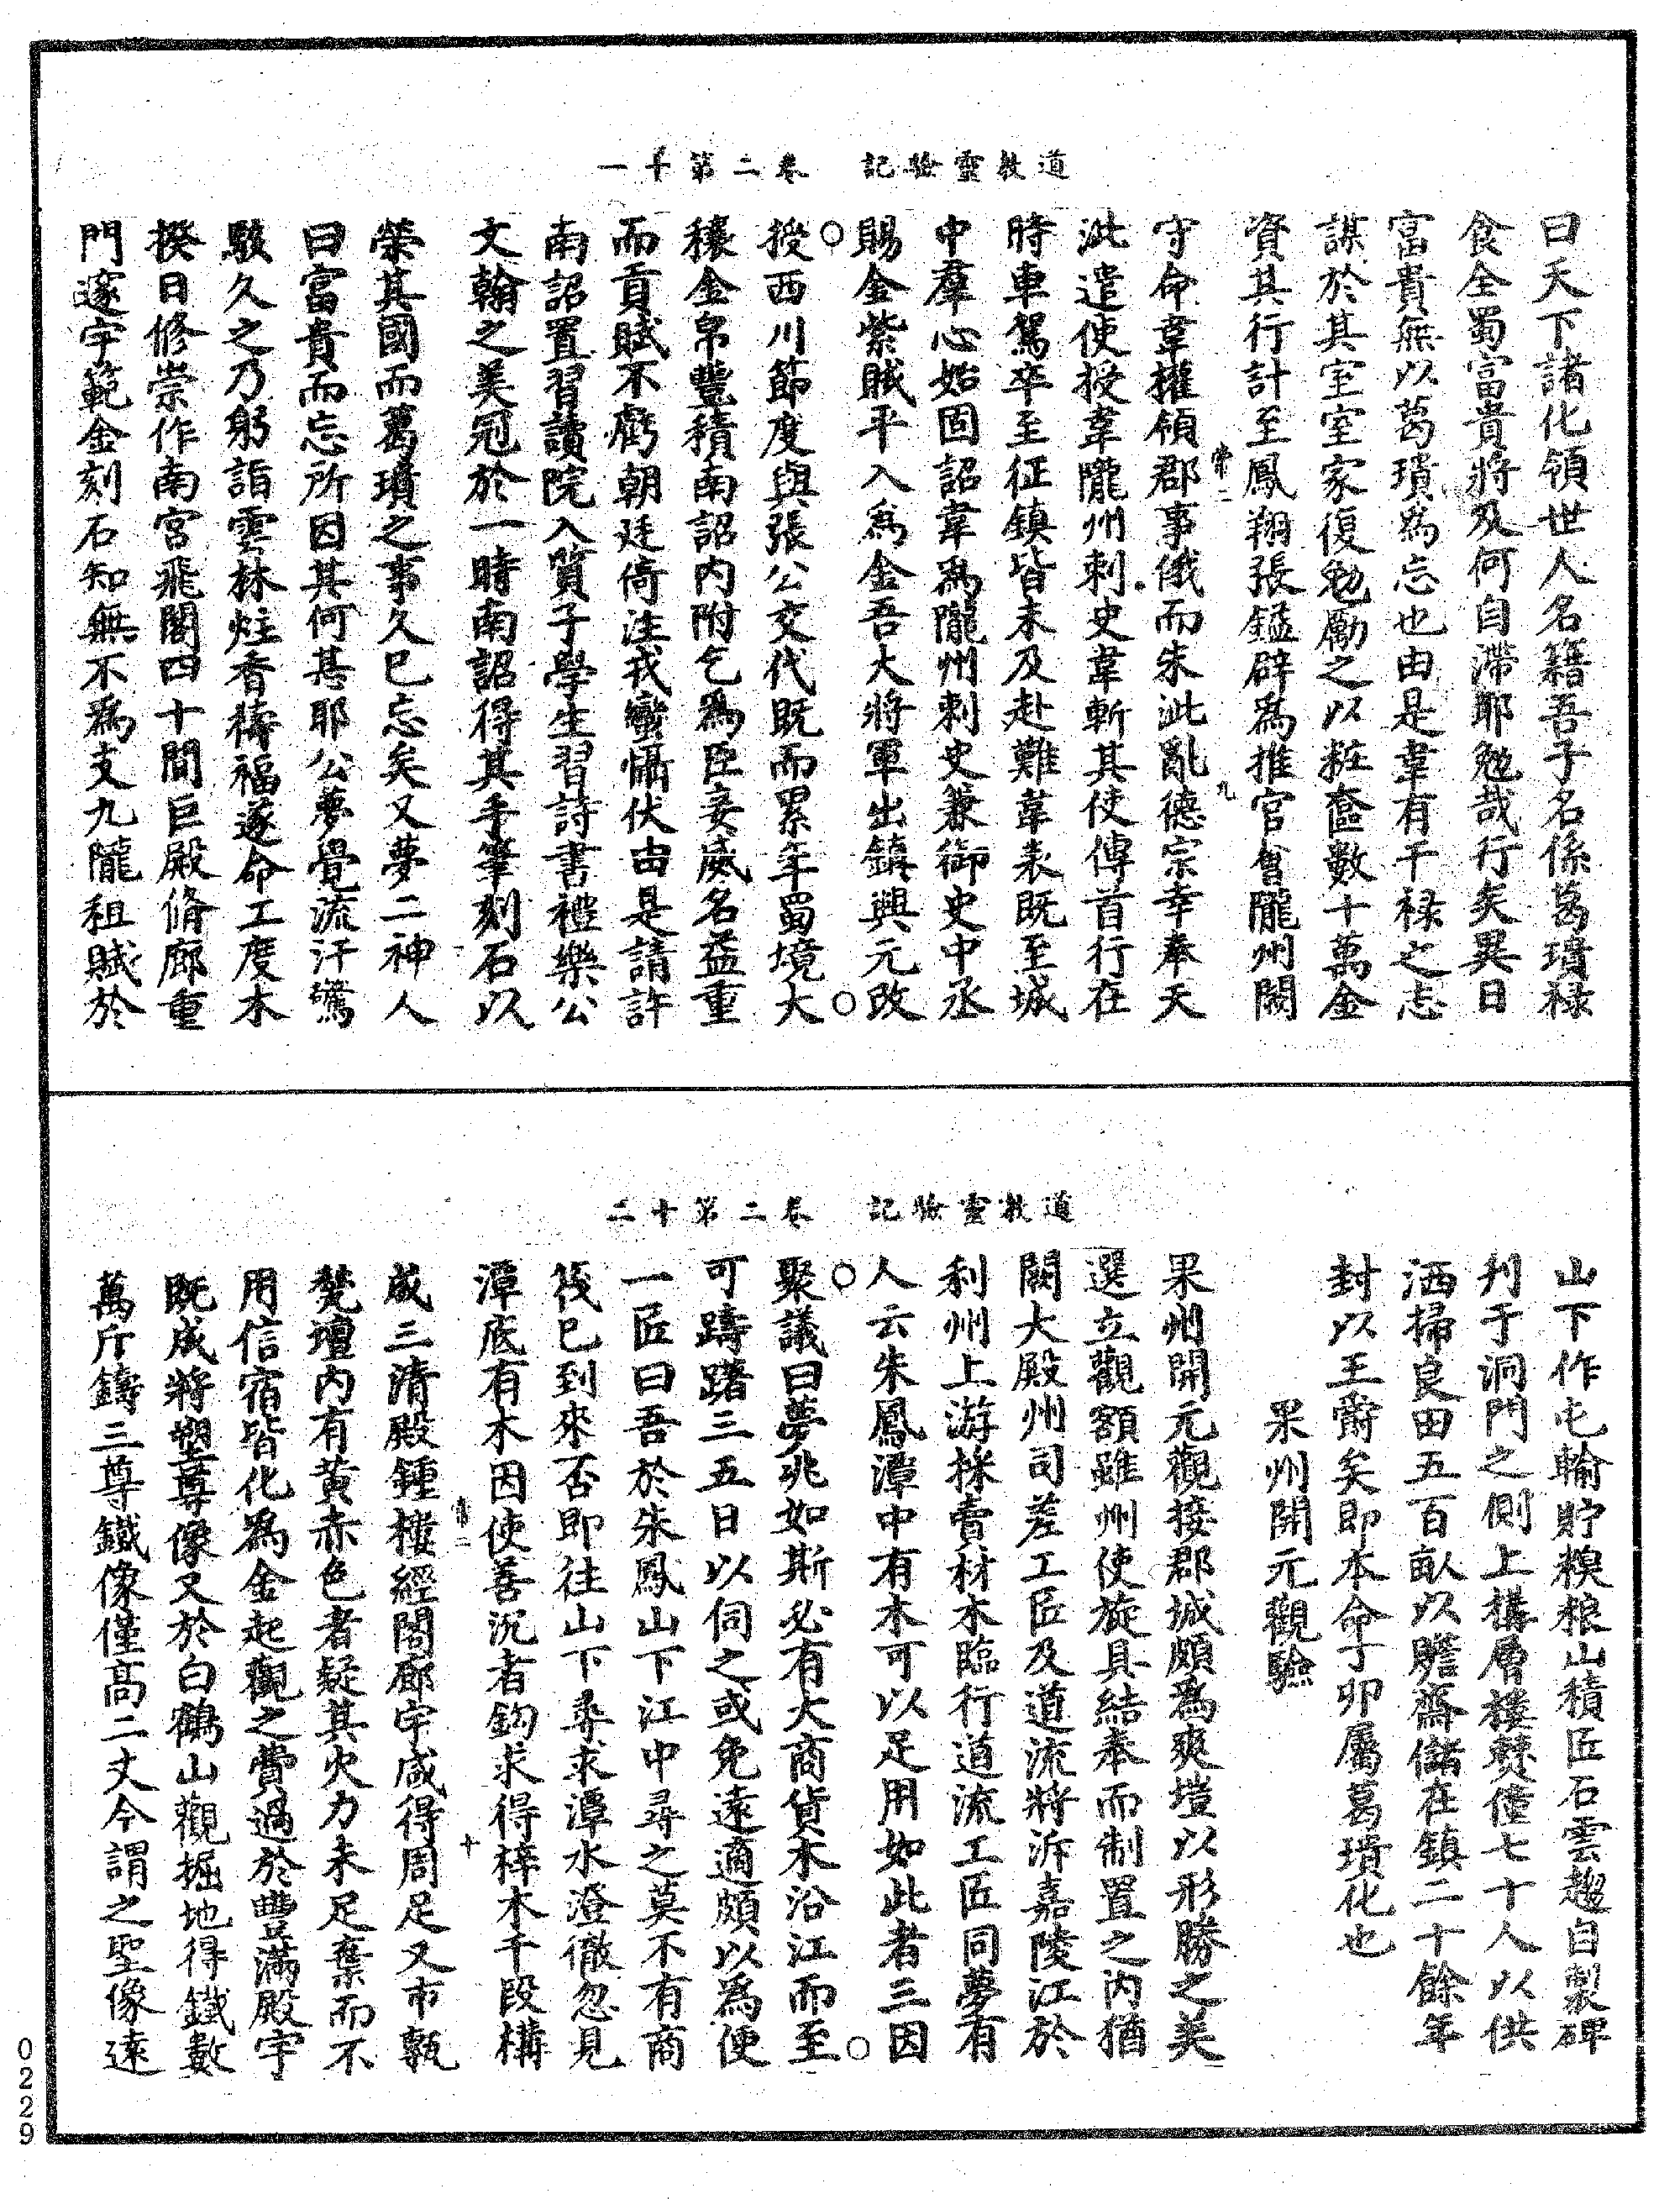 道教靈驗記　卷二第十一
曰天下諸化領世人名籍吾子名係葛璝祿
食全蜀富貴將及何自滯耶勉哉行矣異日
富貴無以葛璝為忘也由是韋有干祿之志
謀於其室室家復勉勵之以粧奩數十萬金
資其行計至鳳翔張鎰辟為推官會隴州闕
守命韋權領郡事俄而朱泚亂德宗幸奉天
泚遣使授韋隴州刺史韋斬其使傳首行在
時車駕卒至征鎮皆未及赴難韋表既至城
中羣心始固詔韋為隴州刺史兼御史中丞
賜金紫賊平入為金吾大將軍出鎮興元改
授西川節度與張公交代既而累年蜀境大
穰金帛豐積南詔內附乞為臣妾威名益重
而貢賦不虧朝廷倚注戎蠻懾伏由是請許
南詔置習讀院入質子學生習詩書禮樂公
文翰之美冠於一時南詔得其手筆刻石以
榮其國而葛璝之事久已忘矣又夢二神人
曰富貴而忘所因其何甚耶公夢覺流汗驚
駭久之乃躬詣雲林炷香禱福遂命工度木
揆日修崇作南宮飛閣四十間巨殿脩廊重
門邃宇範金刻石知無不為支九隴租賦於
道教靈驗記　卷二第十二
山下作屯輸貯糗粮山積匠石雲趨自製碑
刊于洞門之側上構層樓僰僮七十人以供
洒掃良田五百畝以贍齋儲在鎮二十餘年
封以王爵矣即本命丁卯屬葛璝化也
果州開元觀驗
果州開元觀接郡城頗為爽塏以形勝之美
選立觀額雖州使旋具結奉而制置之內猶
闕大殿州司差工匠及道流將泝嘉陵江於
利州上游採賣材木臨行道流工匠同夢有
人云朱鳳潭中有木可以足用如此者三因
聚議曰夢兆如斯必有大商貨木沿江而至
可躊躇三五日以伺之或免遠適頗以為便
一匠曰吾於朱鳳山下江中尋之莫不有商
筏已到來否即往山下尋求潭水澄徹忽見
潭底有木因使善沉者鈎求得梓木千段構
成三清殿鍾樓經閣廊宇咸得周足又市甎
甃壇內有黃赤色者疑其火力未足棄而不
用信宿皆化為金起觀之費過於豐滿殿宇
既成將塑尊像又於白鶴山觀掘地得鐵數
萬斤鑄三尊鐵像僅高二丈今謂之聖像遠
0229